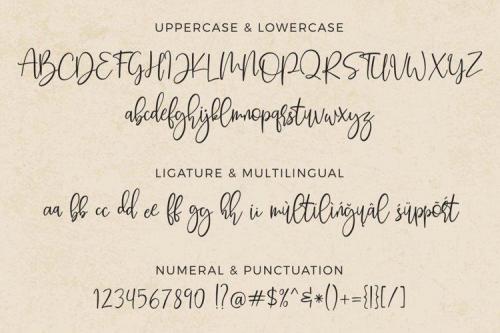 UPPERCASE & LOWERCASE
ABCDEFGHIJKLMNOPQRSTUVWXYZ
abcdefghijklmnopqrstuvwxyz
LIGATURE & MULTILINGUAL
aa bb cc dd ee ff gg hh ii mùltilìńğyâl śüppõŕt
NUMERAL & PUNCTUATION
1234567890 !?@#$%^&*()+={|}[/]